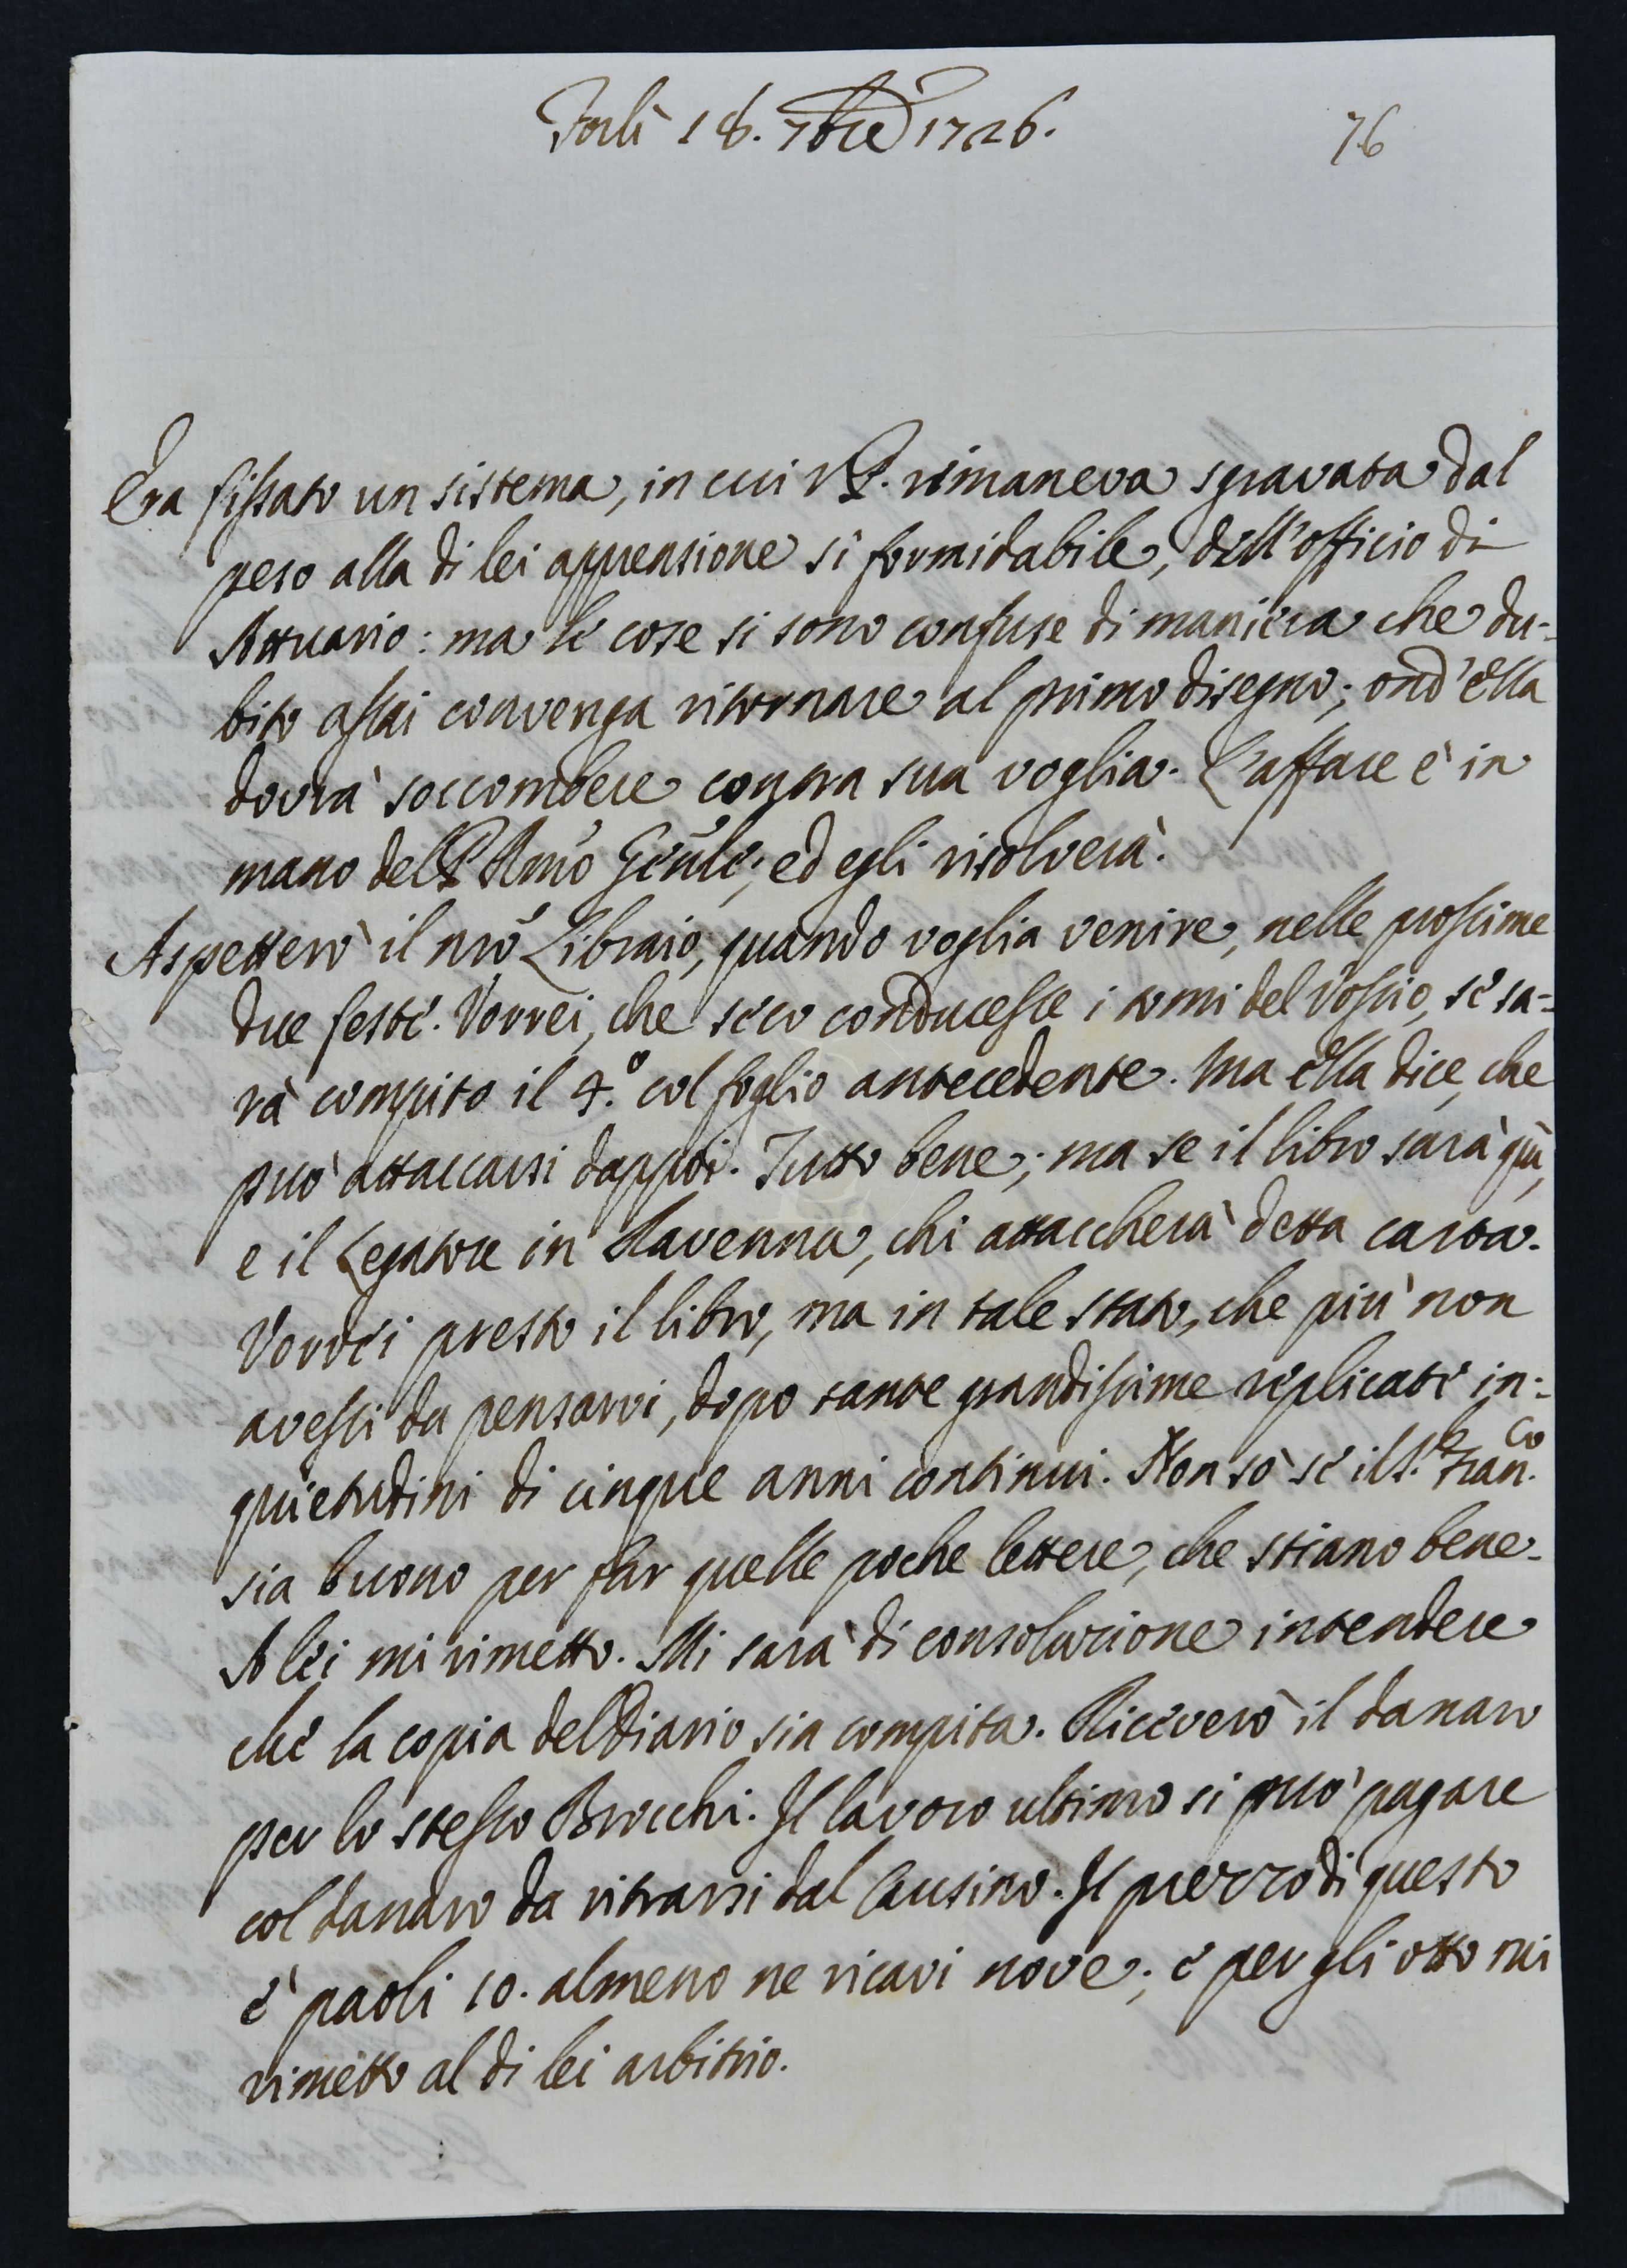 Forlì 18. 7bre 1726.
76
Era fissato un sistema, in cui V.P. rimaneva sgravata dal
peso alla di lei apprensione sì formidabile, dell'officio di
Attuario: ma le cose si sono confuse di maniera che du-
bito assai convenga ritornare al primo disegno; ond'ella
dovrà soccombere contra sua voglia. L'affare è in
mano del P. Rmo Genle; ed egli risolverà.
Aspetterò il nro Libraio, quando voglia venire, nelle prossime
due feste. Vorrei, che seco conducesse i tomi del Vossio, se sa-
rà compito il 4.o col foglio antecedente. Ma ella dice, che
può attaccarsi dappoi. Tutto bene; ma se il libro sarà quì,
e il Legatore in Ravenna, chi attaccherà detta carta.
Vorrei presto il libro, ma in tale stato, che più non
avessi da pensarvi, dopo tante grandissime replicate in-
quietudini di cinque anni continui. Non sò se il P. Fran.co
sia buono per far quelle poche lettere, che stiano bene.
A lei mi rimetto. Mi sarà di consolazione intendere
che la copia del Diario sia compita. Riceverò il danaro
per lo stesso Brocchi. Il lavoro ultimo si può pagare
col danaro da ritrarsi dal Causino. Il prezzo di questo
è paoli 10. almeno ne ricavi nove; e per gli otto mi
rimetto al di lei arbitrio.